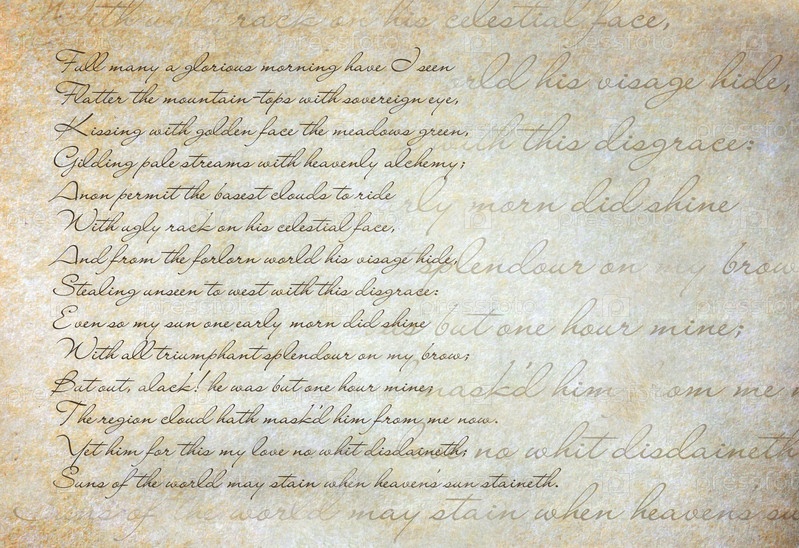 With ugly rack on his celestial face,
Full many a glorious morning have I seen
rld his visage hide,
Flatter the mountain-tops with sovereign eye,
Kissing with golden face the meadows green,
with this disgrace:
Gilding pale streams with heavenly alchemy;
Anon permit the basest clouds to ride
rly morn did shine
With ugly rack on his celestial face,
And from the forlorn world his visage hide,
splendour on my brow
Stealing unseen to west with this disgrace:
Even so my sun one early morn did shine
but one hour mine;
With all triumphant splendour on my brow;
But out, alack! he was but one hour mine;
mask'd him from me n
The region cloud hath mask'd him from me now.
Yet him for this my love no whit disdaineth;
no whit disdaineth
Suns of the world may stain when heaven's sun staineth.
Suns of the world may stain when heaven's su